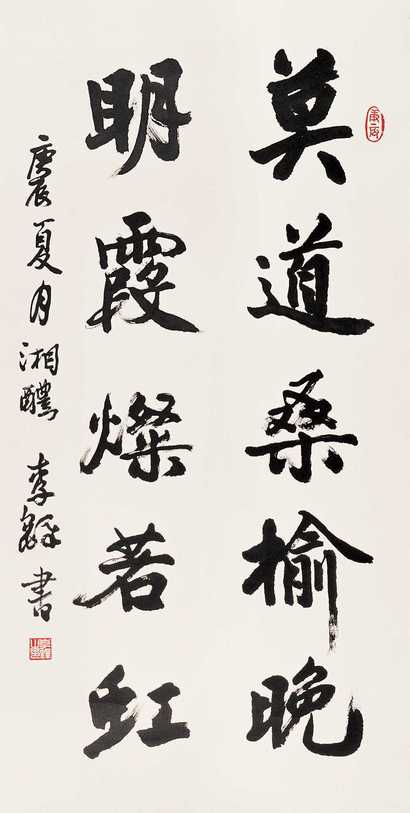 莫道桑榆晚
明霞燦若虹
庚辰夏月湘醴李鐸書